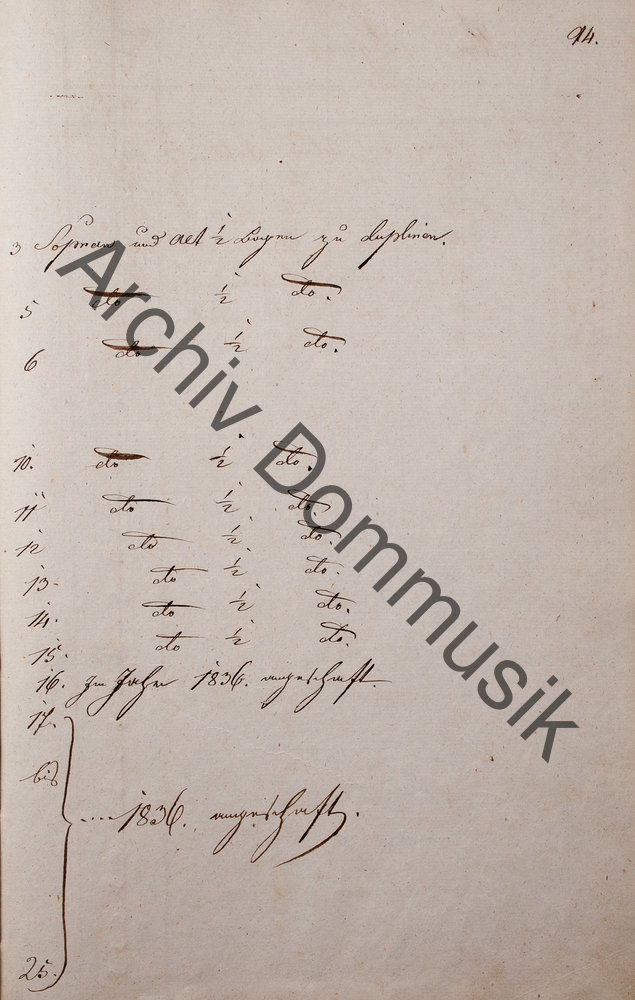 94.
3 Sopran und Alt 1/2 Bogen zu Dupliren.
5 do 1/2 do.
6 do 1/2 do.
10. do 1/2 do.
11 do 1/2 do.
12 do 1/2 do.
13. do 1/2 do.
14. do 1/2 do.
15. do 1/2 do.
16. Im Jahr 1836. angeschaft.
17.
bis
.... 1836. angeschaft.
25.
Archiv Dommusik